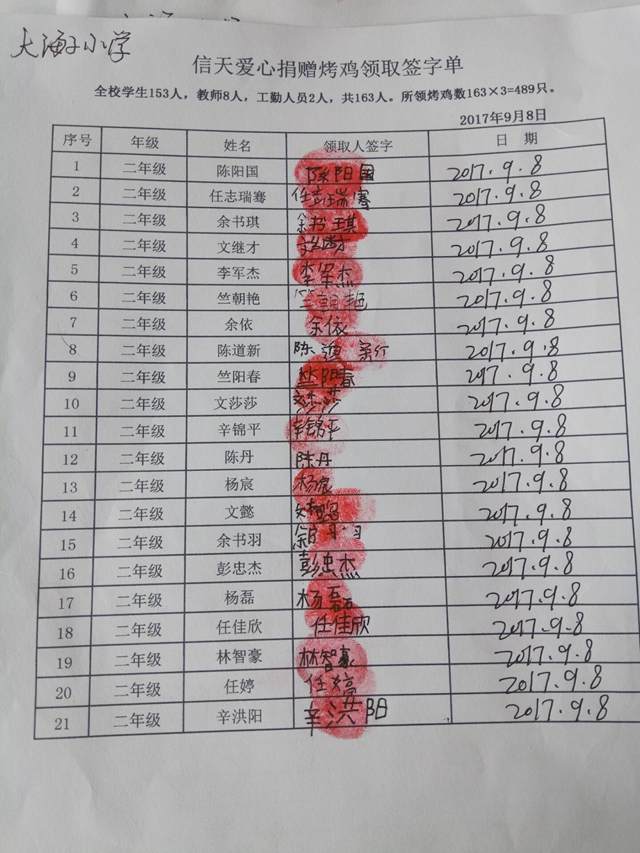 大海子小学
信天爱心捐赠烤鸡领取签字单
全校学生153人，教师8人，工勤人员2人，共163人。所领烤鸡数163×3=489只。
2017年9月8日
序号 年级 姓名 领取人签字 日 期
1 二年级 陈阳国 陈阳国 2017.9.8
2 二年级 任志瑞骞 任志瑞骞 2017.9.8
3 二年级 余书琪 余书琪 2017.9.8
4 二年级 文继才 2017.9.8
5 二年级 李军杰 李军杰 2017.9.8
6 二年级 竺朝艳 竺朝艳 2017.9.8
7 二年级 余依 余依 2017.9.8
8 二年级 陈道新 陈道新 2017.9.8
9 二年级 竺阳春 竺阳春 2017.9.8
10 二年级 文莎莎 文莎莎 2017.9.8
11 二年级 辛锦平 辛锦平 2017.9.8
12 二年级 陈丹 陈丹 2017.9.8
13 二年级 杨宸 杨宸 2017.9.8
14 二年级 文懿 2017.9.8
15 二年级 余书羽 2017.9.8
16 二年级 彭忠杰 彭忠杰 2017.9.8
17 二年级 杨磊 杨磊 2017.9.8
18 二年级 任佳欣 任佳欣 2017.9.8
19 二年级 林智豪 林智豪 2017.9.8
20 二年级 任婷 任婷 2017.9.8
21 二年级 辛洪阳 辛洪阳 2017.9.8